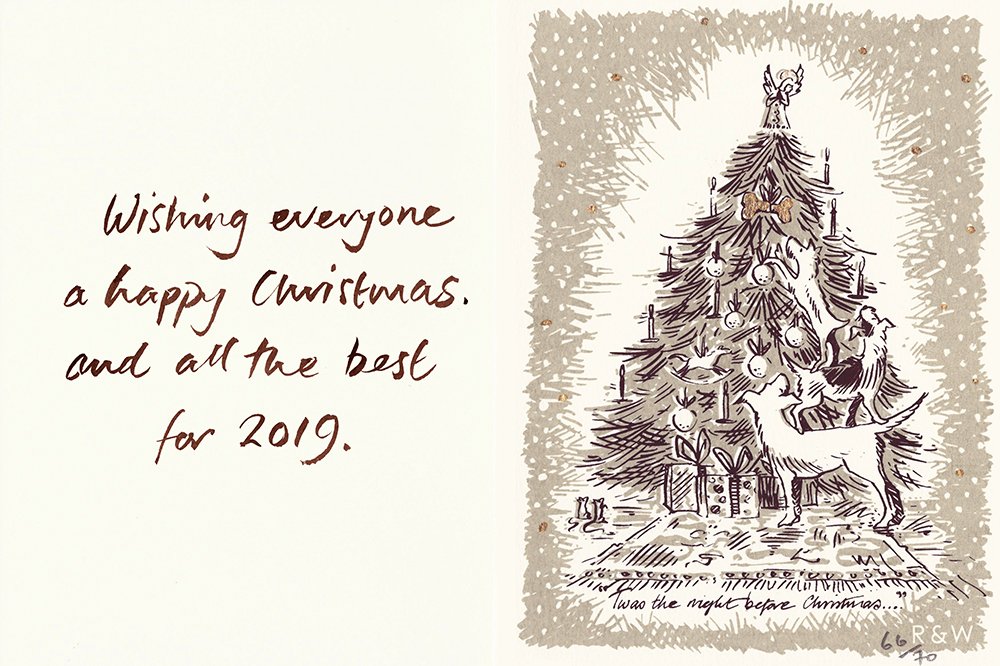 Wishing everyone
a happy Christmas.
and all the best
for 2019.
'Twas the night before Christmas...."
66/70
R & W